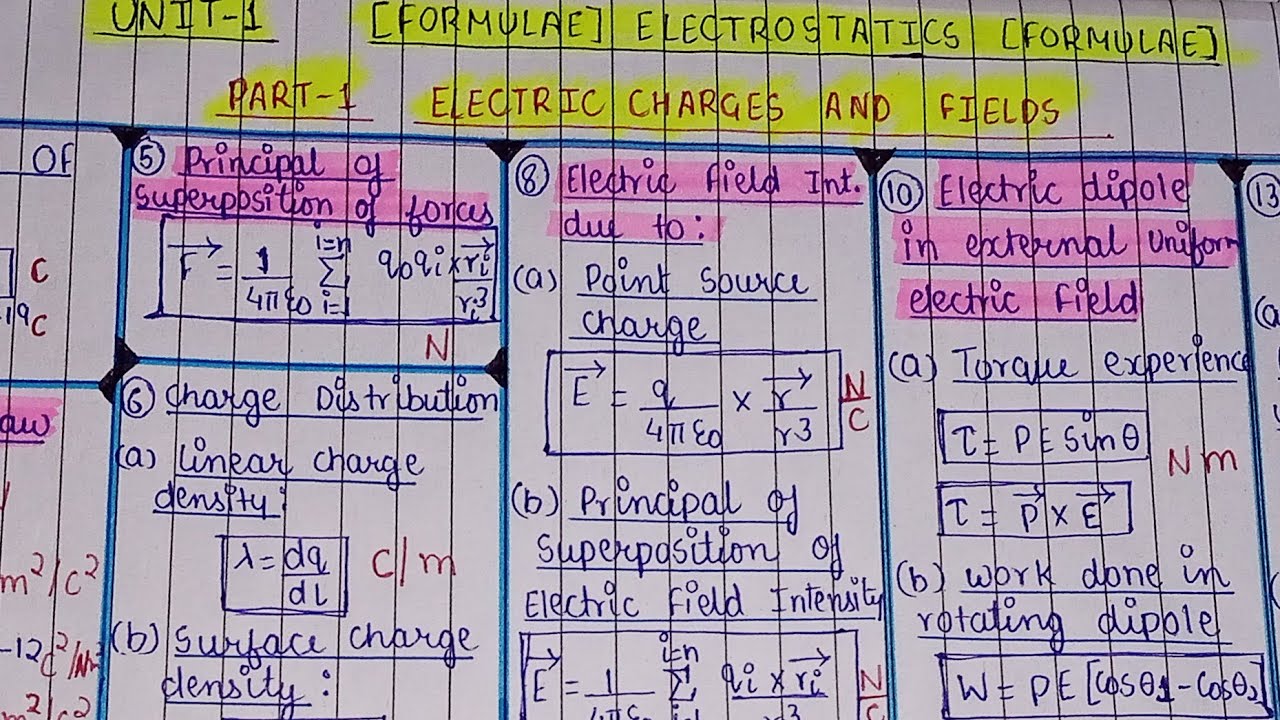 UNIT-1 [FORMULAE] ELECTROSTATICS [FORMULAE]
PART-1 ELECTRIC CHARGES AND FIELDS
OF
C
-19C
aw
m²/c²
-12c²/Nm²
m²/c²
⑤ Principal of
superposition of forces
F⃗ = 1/4πε0 Σ(i=1 to i=n) q0qi × r⃗i/ri3
N
⑥ Charge Distribution
(a) Linear charge
density:
λ = dq/dl C/m
(b) Surface charge
density:
⑧ Electric Field Int.
due to:
(a) Point Source
charge
E⃗ = q/4πε0 × r⃗/r3 N/C
(b) Principal of
Superposition of
Electric Field Intensity
E⃗ = 1/4πε0 Σ(i=1 to i=n) qi × r⃗i/r3 N/C
⑩ Electric dipole
in external uniform
electric field
(a) Torque experience
τ = PE Sinθ
Nm
τ = P⃗ × E⃗
(b) work done in
rotating dipole
W = PE [Cosθ1 - Cosθ2]
⑬
(a